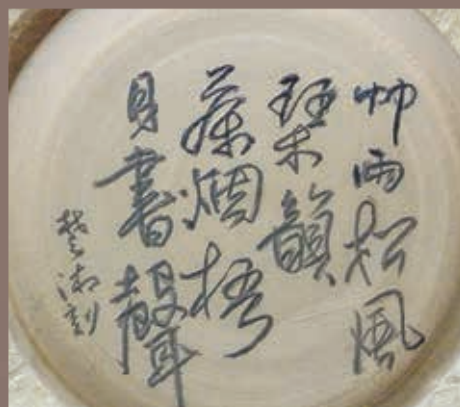 竹雨松風
琴韻
茶烟梧
月書聲
刻